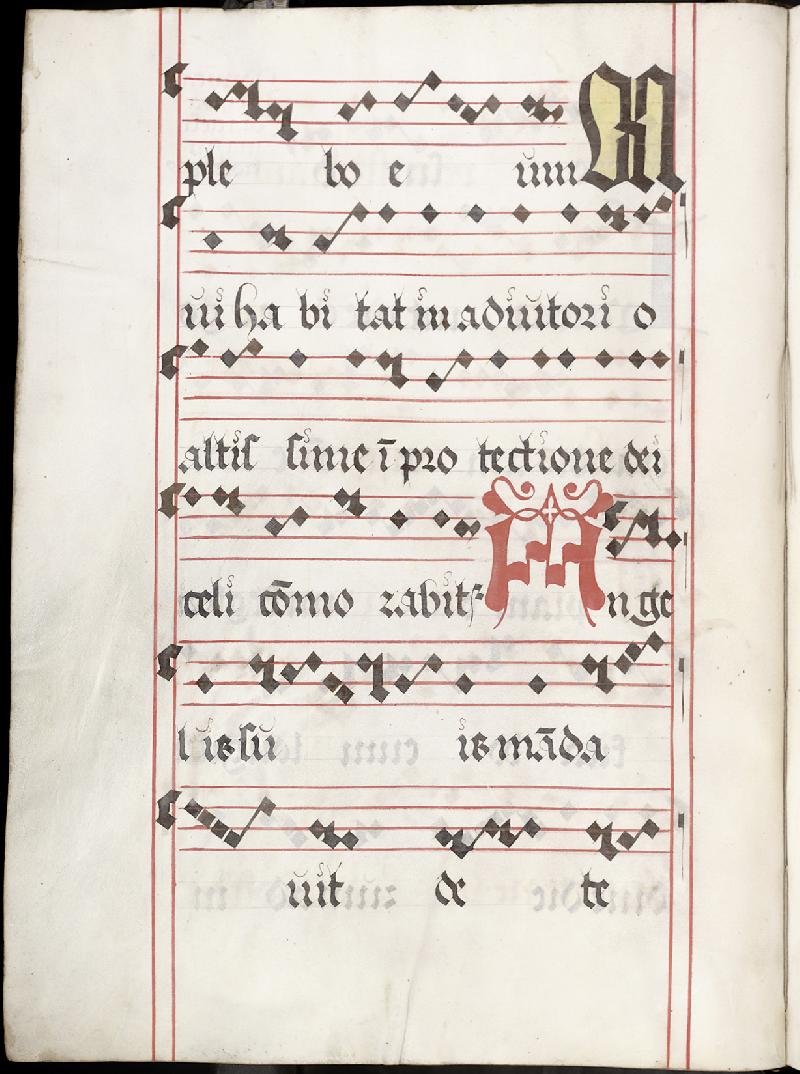 ple bo e um Q
ui ha bi tat in adiutori o
altis sime ī pro tectione dei
celi cōmo rabit͛ Ange
l is su is māda
uit de te